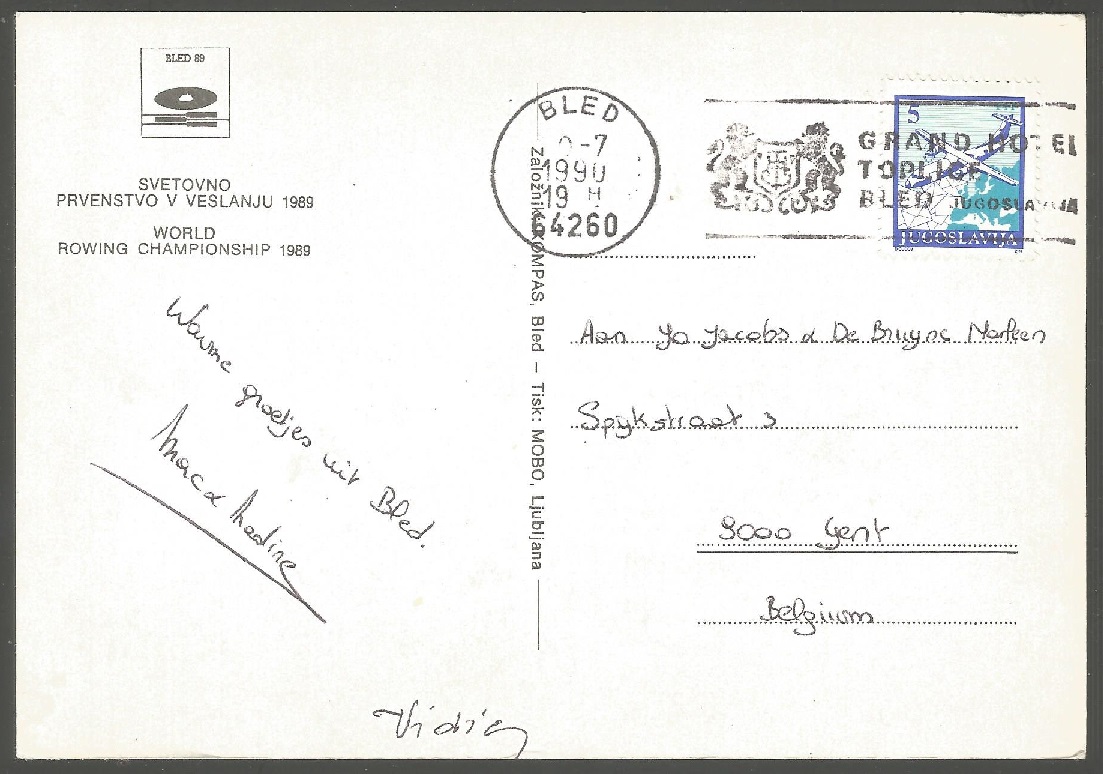 BLED 89
SVETOVNO
PRVENSTVO V VESLANJU 1989
WORLD
ROWING CHAMPIONSHIP 1989
Warme groetjes uit Bled.
Marc & Nadine
Založnik KOMPAS, Bled – Tisk: MOBO, Ljubljana
BLED
-7
1990
19 H
64260
GRAND HOTEL
TOPLICE
BLED JUGOSLAVIJA
5
JUGOSLAVIJA
Aan Jo Jacobs & De Bruyne Marleen
Spijkstraat 3
9000 Gent
Belgium